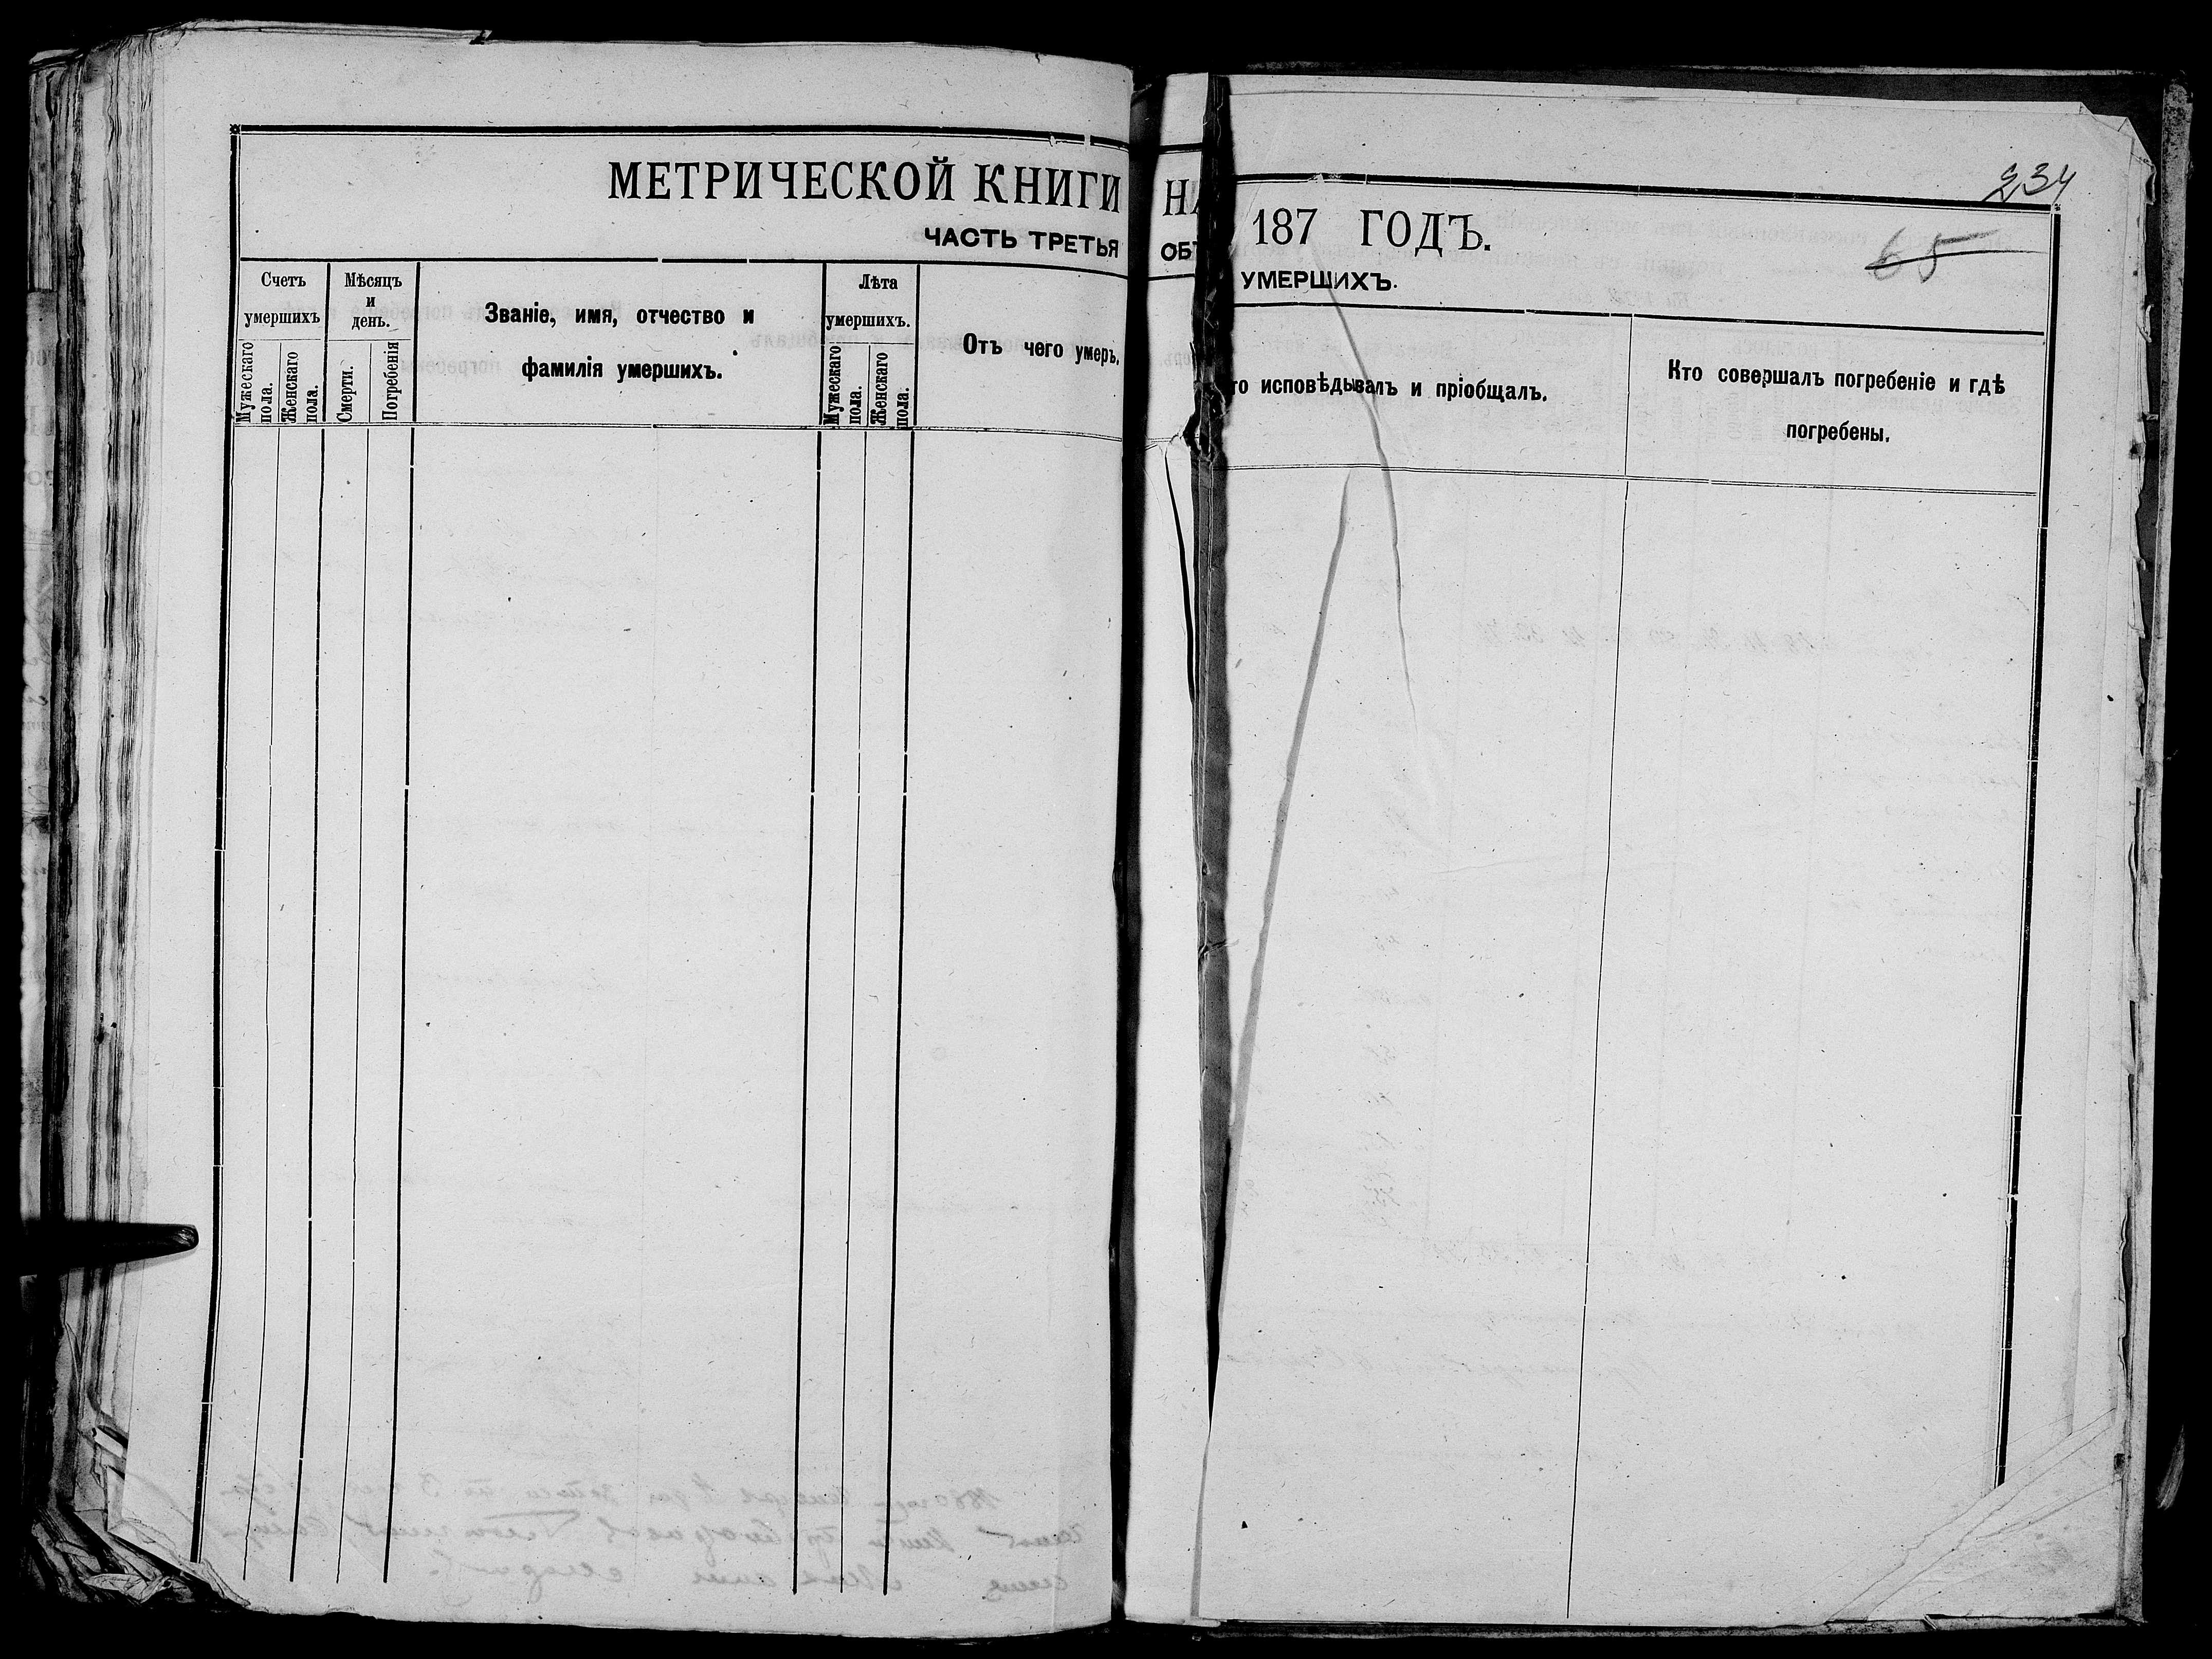 234
65
МЕТРИЧЕСКОЙ КНИГИ НА 187 ГОДЪ.
ЧАСТЬ ТРЕТЬЯ ОБЪ УМЕРШИХЪ.
Счетъ умершихъ
Мужескаго пола.
Женскаго пола.
Мѣсяцъ и день.
Смерти.
Погребенія
Званіе, имя, отчество и
фамилія умершихъ.
Лѣта умершихъ.
Мужескаго пола.
Женскаго пола.
Отъ чего умеръ.
то исповѣдывалъ и пріобщалъ.
Кто совершалъ погребеніе и гдѣ
погребены.